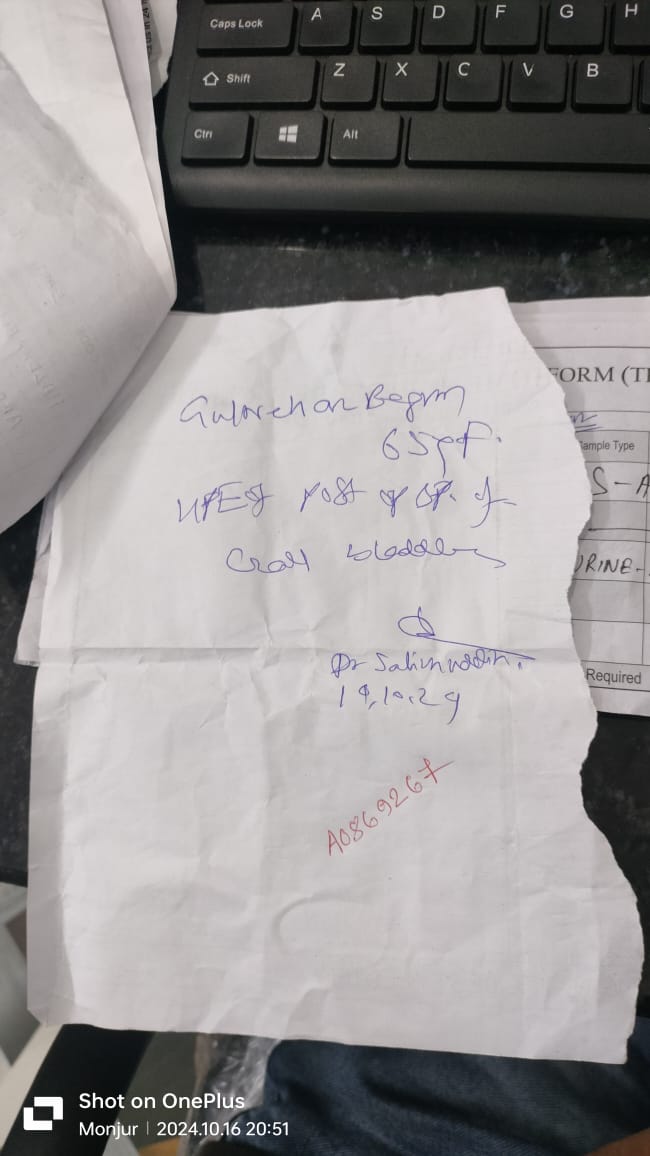 Caps Lock A S D F G H
Shift Z X C V B
Ctrl Alt
FORM (TI
Sample Type
S-A
URINE-
Required
Begum
65yrF.
HPE of post op
Gall bladder
Dr Salimuddin.
A0869267
Shot on OnePlus
Monjur | 2024.10.16 20:51